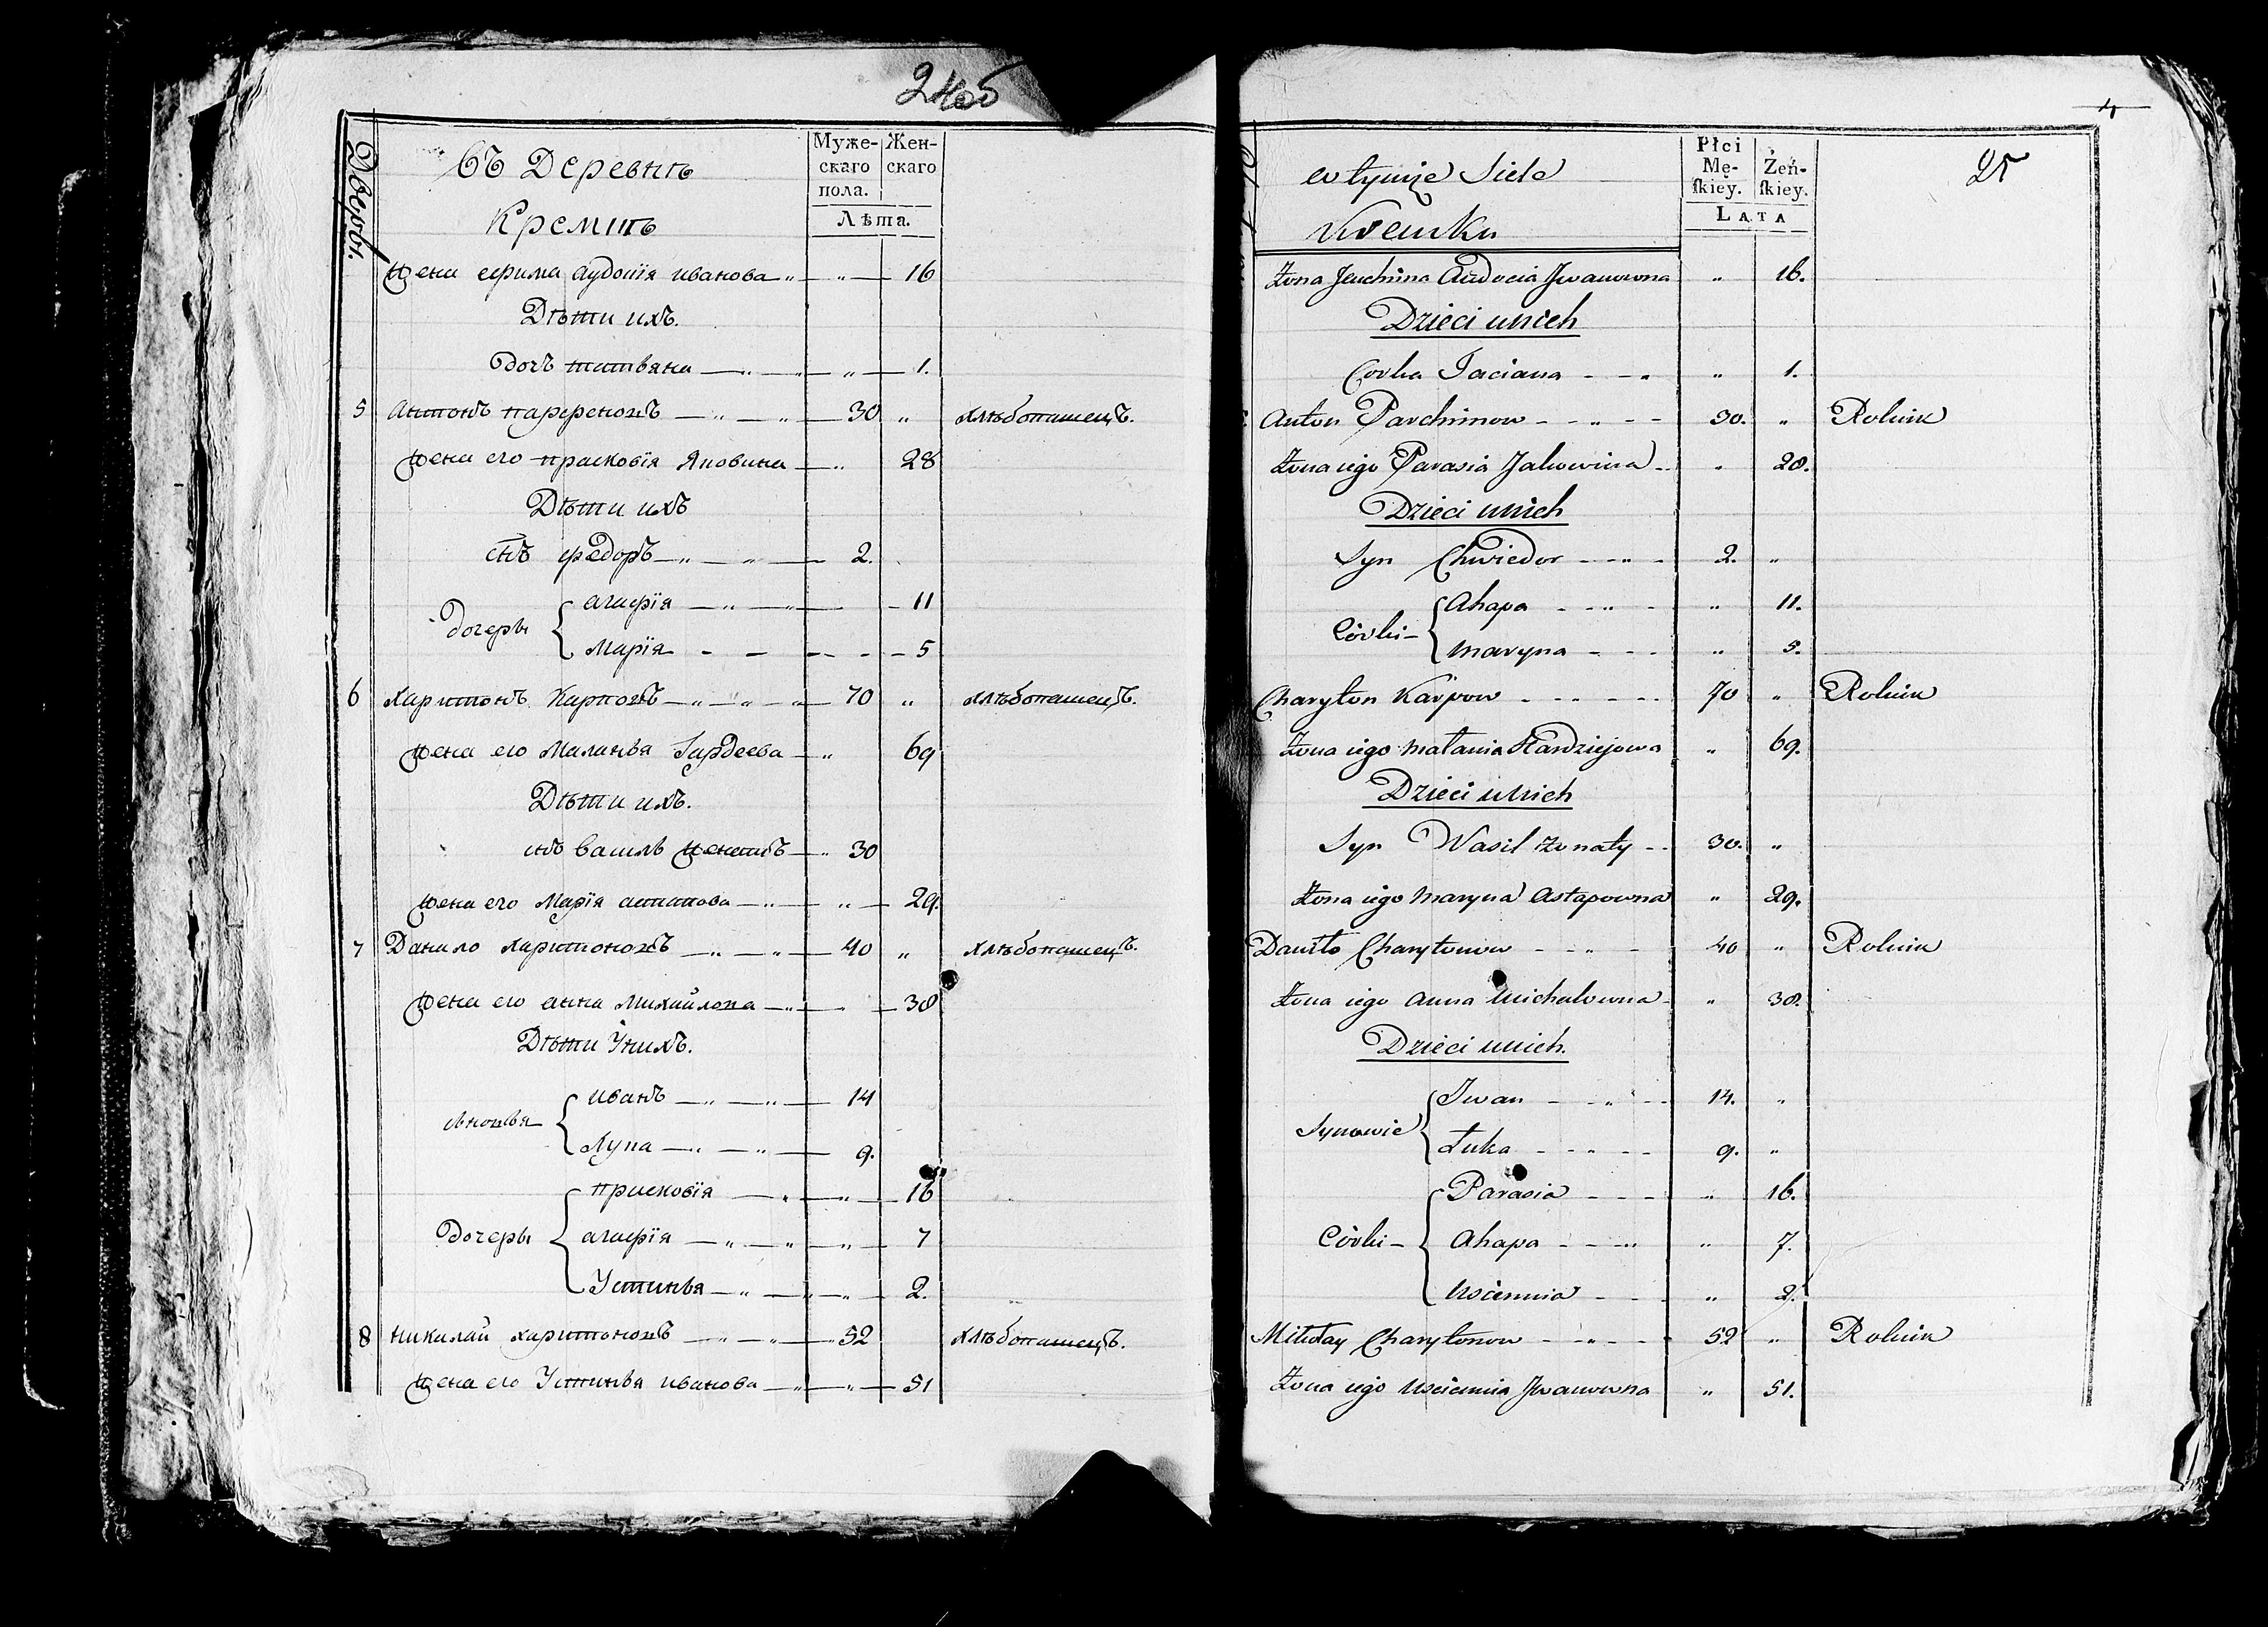 24об
Дворы.
Въ Деревнѣ
Кремнѣ
Муже-
скаго
пола.
Жен-
скаго
Лѣта.
Жена ефима аудоція иванова „ „ 16
Дѣти ихъ.
дочъ татьяна „ „ 1.
5 Антонъ парфеновъ „ „ 30 „ хлѣбопашецъ.
Жена его прасковія Яковина „ 28
Дѣти ихъ
снъ федоръ „ „ 2.
дочеръи { агафія „ „ 11
Марія 5
6 Харитонъ Карповъ „ „ „ 70 „ хлѣбопашецъ.
Жена его Маланья Гардеева „ 69
Дѣти ихъ.
снъ Василь женатъ „ 30
Жена его Марія астапова „ „ 29.
7 Данило харитоновъ „ „ 40 „ хлѣбопашецъ.
Жена его анна Михайлова „ „ 38
Дѣти Унихъ.
сыновья { иванъ „ „ 14
Лука „ „ 9.
Дочеръи { прасковія „ „ 16
агафія „ „ „ 7
Устинья „ „ „ 2.
8 Николай харитоновъ „ „ „ 52 хлѣбопашецъ.
Жена его Устинья иванова „ „ 51
4
25
w tymże Siele
Płci
Mę-
ſkiey.
Żeń-
ſkiey.
LATA
Żona Jeuchima Audocia Jwanowna „ 16.
Dzieci unich
Corka Taciana „ „ 1.
Anton Parchimow „ 30. „ Rolnik
Żona iego Parasia Jakowina „ 28.
Dzieci unich
Syn Chwiedor „ 2. „
Córki { Ahapa „ „ 11.
Maryna „ 5.
Charyton Karpow 70 „ Rolnik
Żona iego Matania Hardziejowa „ 69.
Dzieci unich
Syn Wasil żonaty 30. „
Żona iego Maryna Astapowna „ 29.
Daniło Charytonow „ 40 „ Rolnik
Żona iego Anna Michałowna „ 38.
Dzieci unich.
Synowie { Jwan „ 14. „
Łuka 9. „
Córki { Parasia „ 16.
Ahapa „ „ 7.
Uścinnia „ 2.
Mikołay Charytonow „ 52 „ Rolnik
Żona iego Uścinnia Jwanowna „ 51.